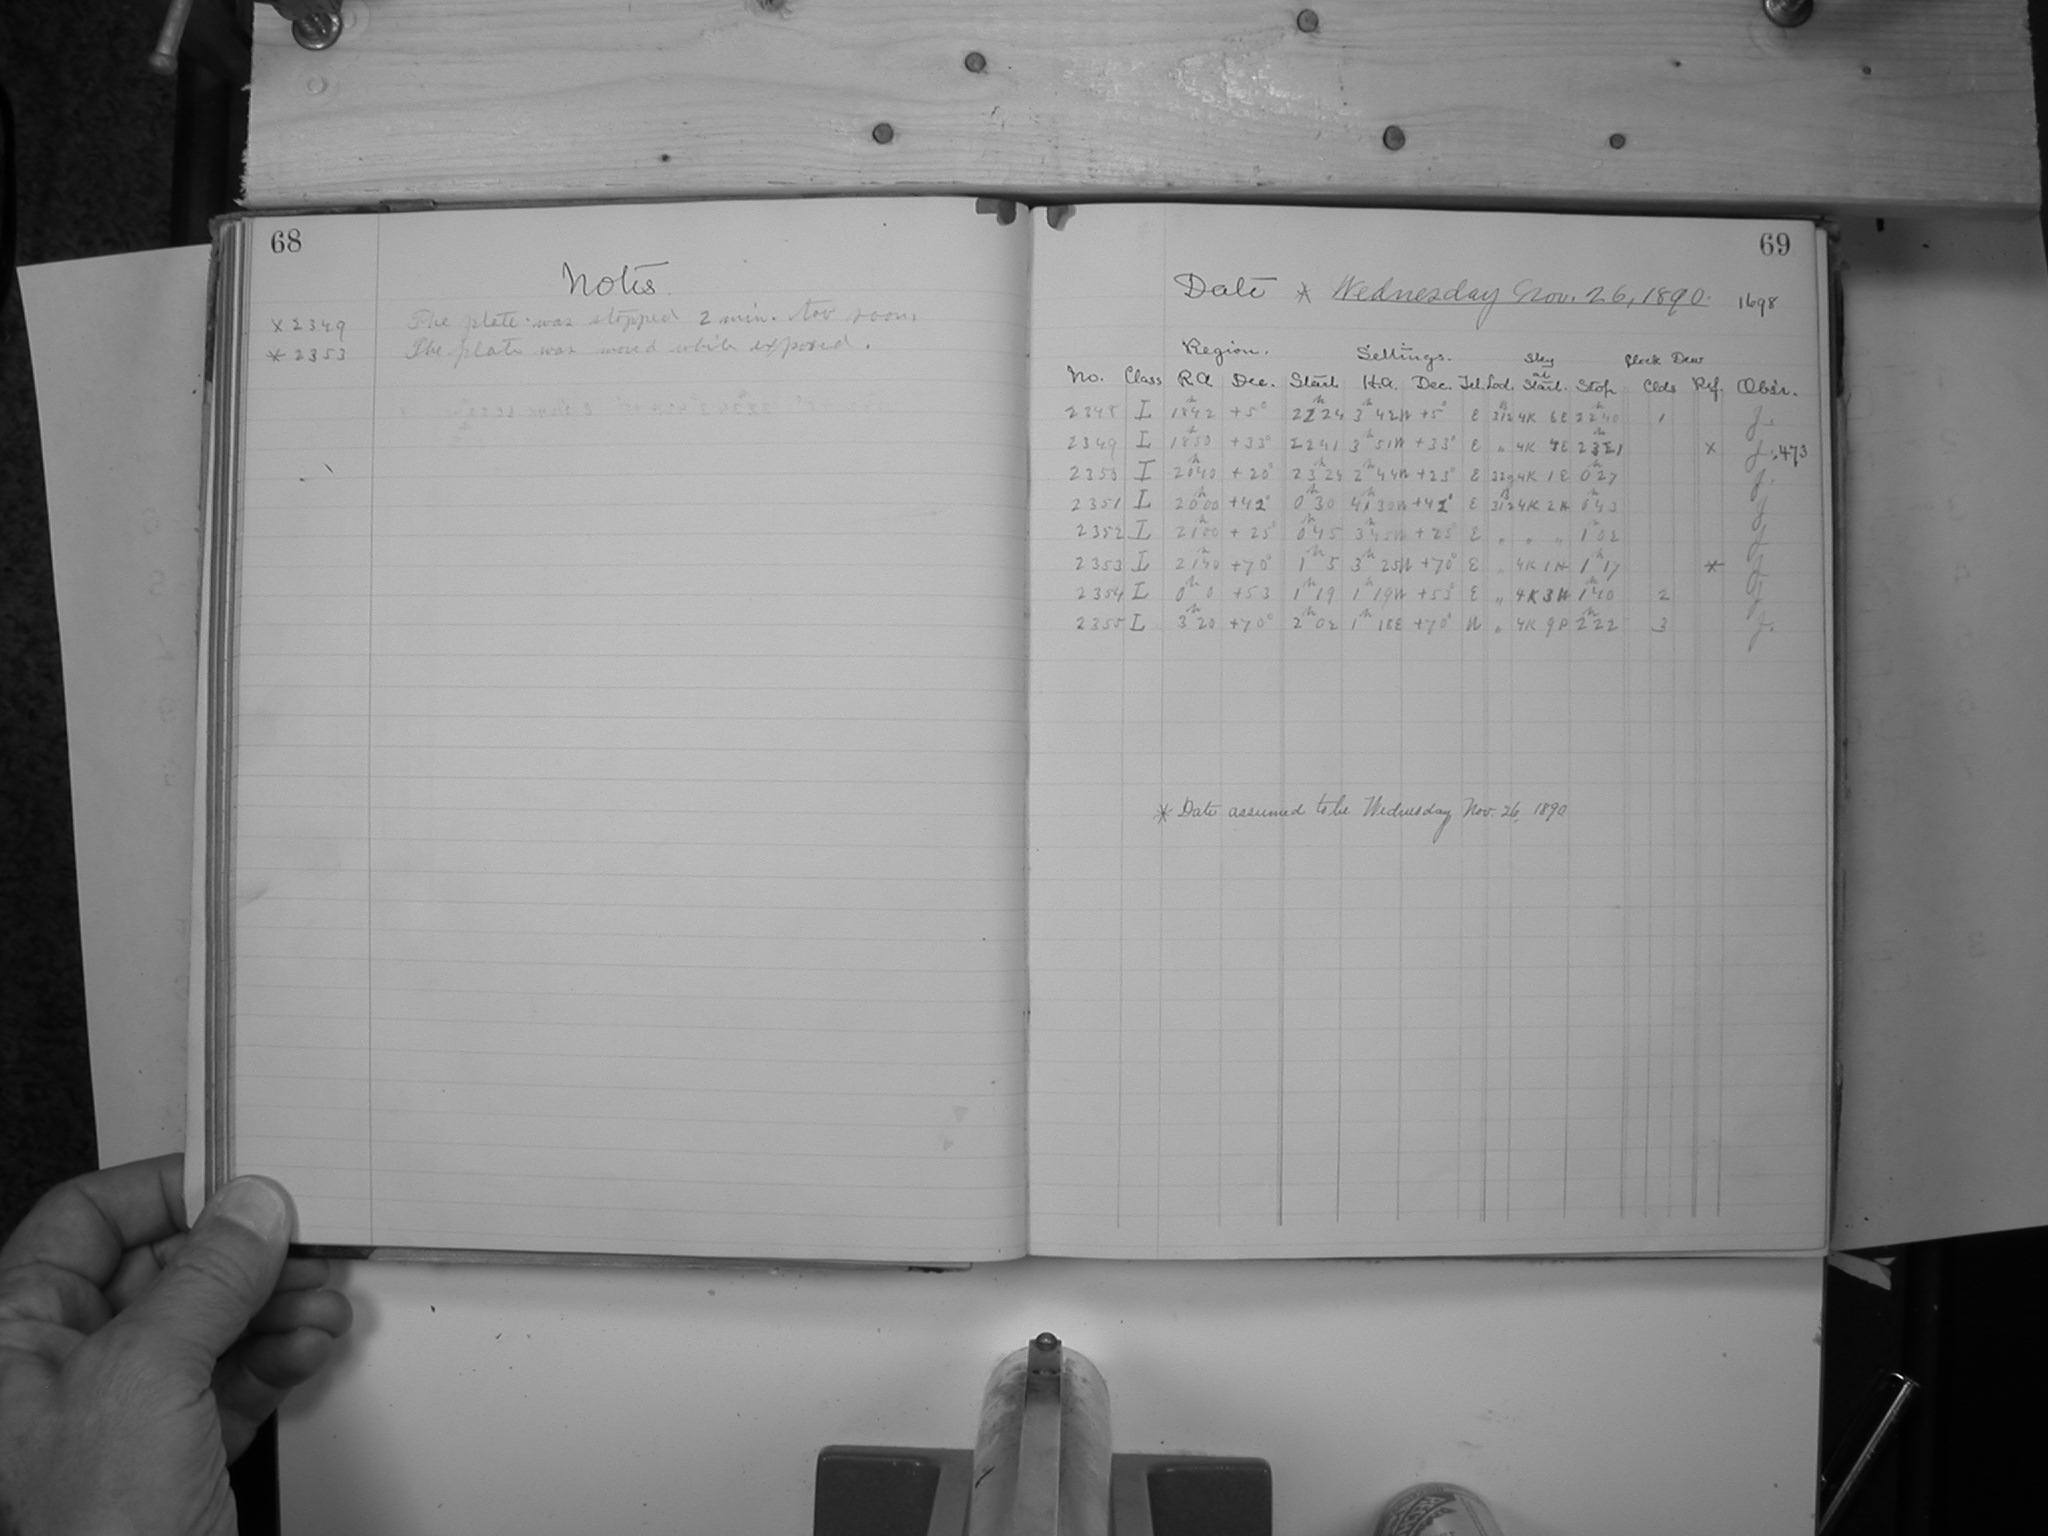 68
Notes
x 2349 The plate was stopped 2 min. too soon.
* 2353 The plate was moved while exposed.
69
Date * Wednesday Nov. 26, 1890. 1698
Region. Settings. Sky Clock Dew
No. Class R.A. Dec. Start H.A. Dec. Tel. Lod. at Start. Stop Clds Ref. Obsr.
2348 I 18h42 +5° 22h24 3h42W +5° E 312 4K 6E 22h40 1 J.
2349 I 18h50 +33° 2241 3h51W +33° E " 4K 23h21 x J. .473
I 20h40 +20° 23h24 2h44W E 4K 1E 0h27 J.
2351 I 20h00 +42° 0h30 4h30W +42° E 312 4K 2W 0h43 J
2352 I 21h00 +25° 0h45 3h45W +25° E " " " 1h02 J
2353 I 21h40 +70° 1h5 3h25W +70° E " 4K 1W 1h17 * J
2354 I 0h0 +53 1h19 1h19W +53° E " 4K 3W 1h40 2 J
2355 I 3h20 +70° 2h02 1h18E +70° W " 4K 9P 2h22 3 J.
* Date assumed to be Wednesday Nov. 26, 1890